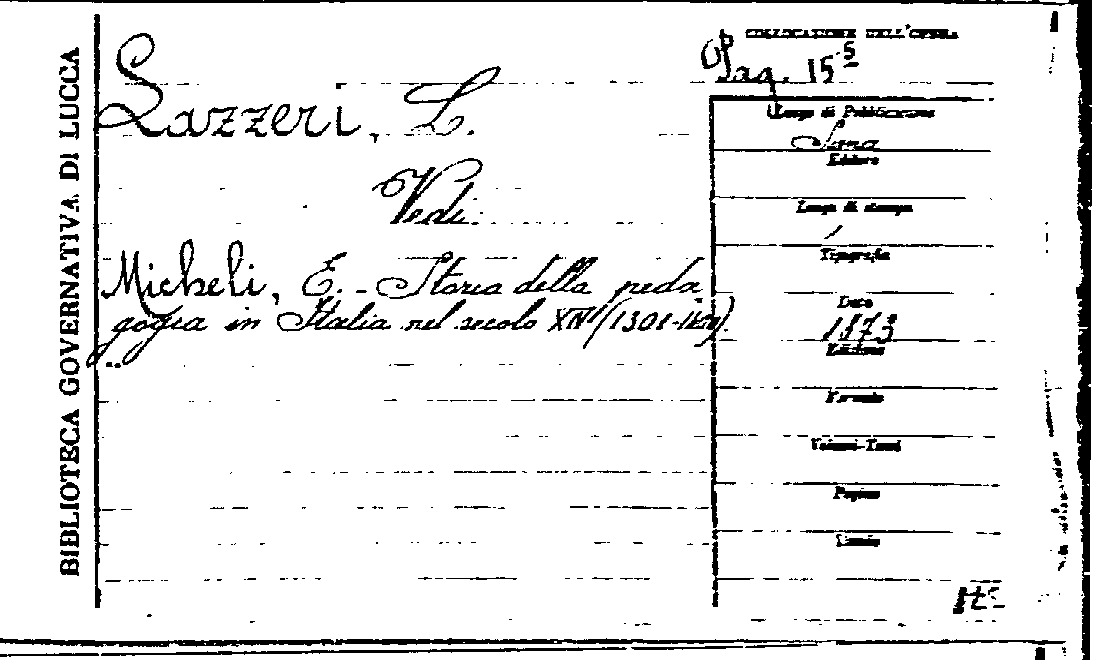 BIBLIOTECA GOVERNATIVA DI LUCCA
COLLOCAZIONE DELL'OPERA
Pag. 15⁵
Lazzeri, L.
Vedi
Micheli, E. - Storia della peda
gogia in Italia nel secolo
Luogo di Pubblicazione
Editore
Luogo di stampa
Tipografia
Data
1873
Edizione
Formato
Volumi-Tomi
Pagine